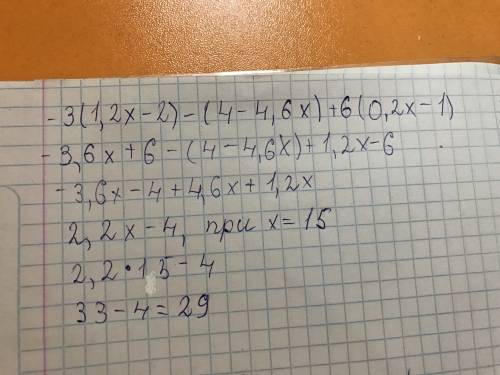 -3(1,2x-2)-(4-4,6x)+6(0,2x-1)
-3,6x+6-(4-4,6x)+1,2x-6
-3,6x-4+4,6x+1,2x
2,2x-4, при x=15
2,2•15-4
33-4=29